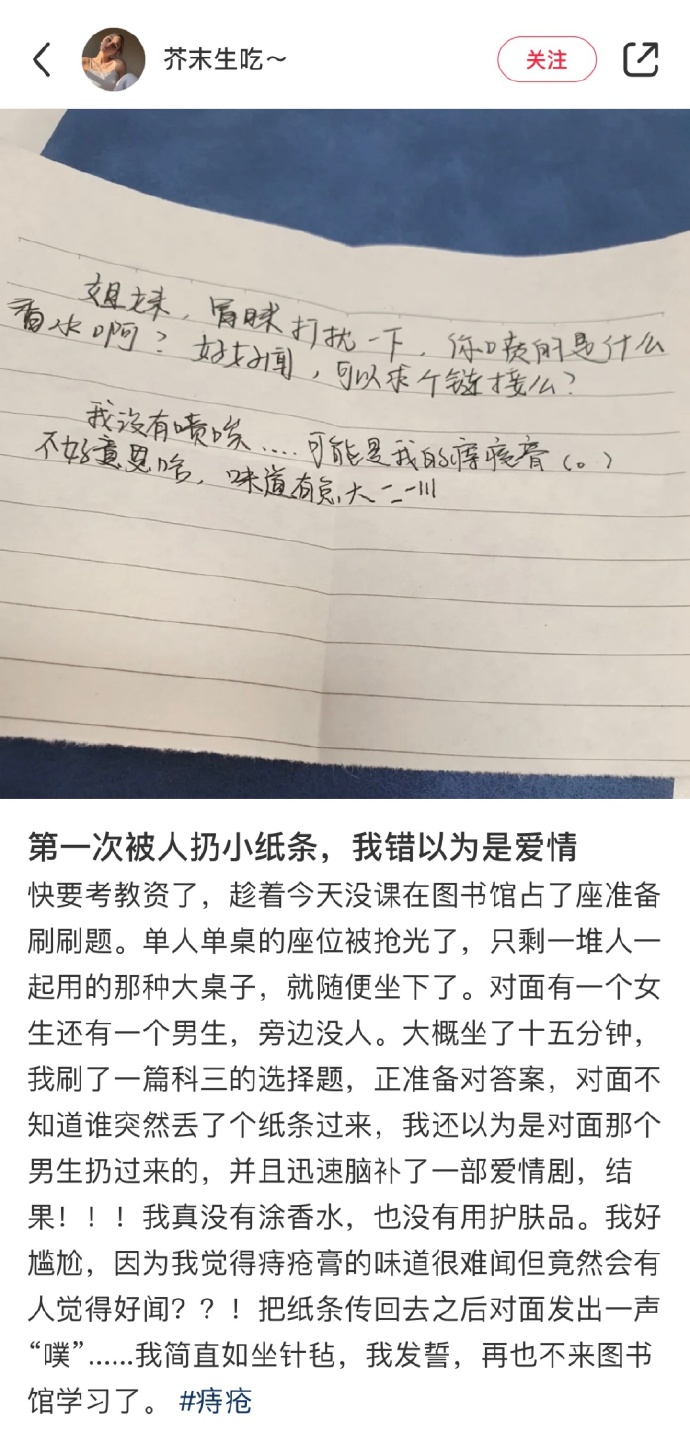 芥末生吃～
关注
姐妹，冒昧打扰一下，你喷的是什么
香水啊？好好闻，可以求个链接么？
我没有喷唉....可能是我的痔疮膏（。）
不好意思哈，味道有点大
第一次被人扔小纸条，我错以为是爱情
快要考教资了，趁着今天没课在图书馆占了座准备
刷刷题。单人单桌的座位被抢光了，只剩一堆人一
起用的那种大桌子，就随便坐下了。对面有一个女
生还有一个男生，旁边没人。大概坐了十五分钟，
我刷了一篇科三的选择题，正准备对答案，对面不
知道谁突然丢了个纸条过来，我还以为是对面那个
男生扔过来的，并且迅速脑补了一部爱情剧，结
果！！！我真没有涂香水，也没有用护肤品。我好
尴尬，因为我觉得痔疮膏的味道很难闻但竟然会有
人觉得好闻？？！把纸条传回去之后对面发出一声
“噗”......我简直如坐针毡，我发誓，再也不来图书
馆学习了。 #痔疮